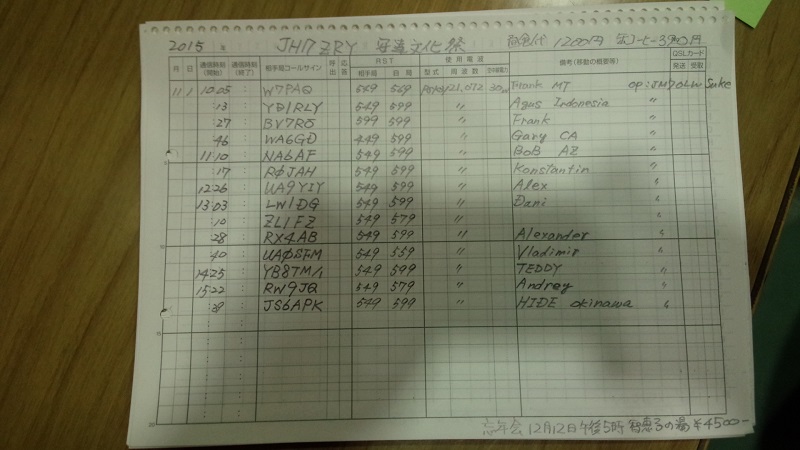 2015 年 JH7ZRY 安達文化祭 1200円
月 日 通信時刻(開始) 通信時刻(終了) 相手局コールサイン 呼出 応答 RST 相手局 自局 使用電波 型式 周波数 備考(移動の概要等) QSLカード 発送 受取
11 1 10:05 : W7PAQ 549 569 21,072 30 Frank MT OP:JM7OLW Suke
:13 : YD1RLY 549 599 〃 Agus Indonesia 〃
:27 : BV7RO 599 599 〃 Frank 〃
:46 : WA6GD 449 599 〃 Gary CA 〃
11:10 : NA6AF 549 599 〃 BoB AZ 〃
:17 : RØJAH 549 599 〃 Konstantin 〃
12:26 : UA9YIY 549 599 〃 Alex 〃
13:03 : LW1DG 549 599 〃 Dani 〃
:10 : ZL1FZ 549 579 〃 〃
:28 : RX4AB 549 599 〃 Alexander 〃
:40 : 549 559 〃 Vladimir 〃
14:25 : YB8TM/1 549 599 〃 TEDDY 〃
15:22 : RW9JQ 549 579 〃 Andrey 〃
: JS6APK 549 599 〃 HIDE okinawa 〃
忘年会 12月12日午後5時 智恵子の湯 ¥4500-